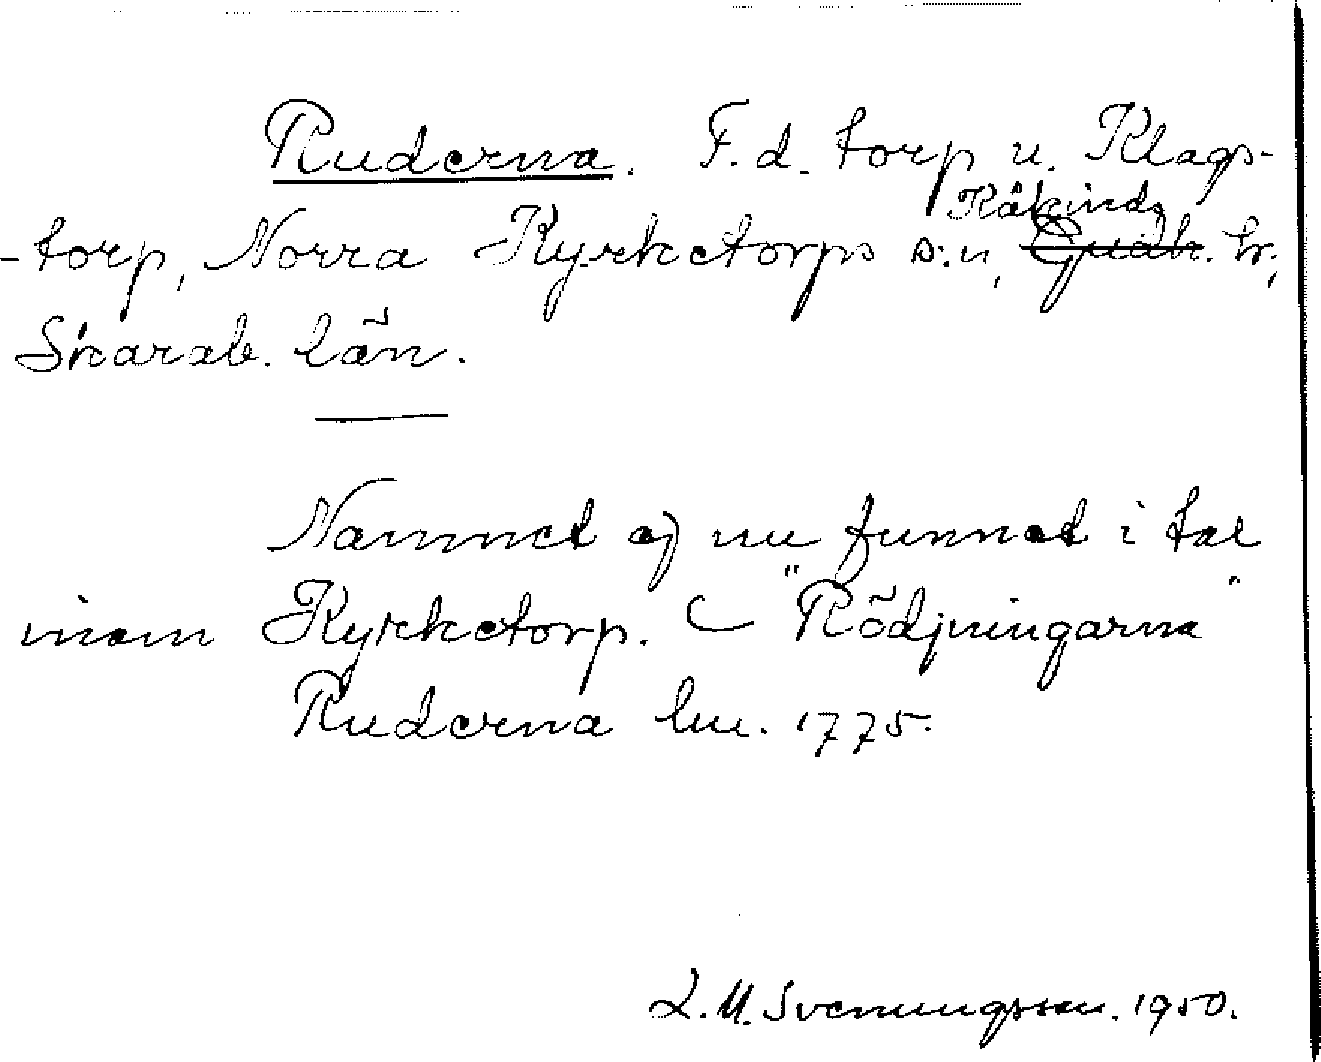 Ruderna. F.d. torp u. Klags-
Kåkinds
-torp, Norra Kyrketorps s:n, Gudh. hr.,
Skarab. län.
Namnet ej nu funnet i tal
inom Kyrketorp. "Rödjningarna"
Ruderna lm. 1775.
L.M. Svenungsson. 1950.